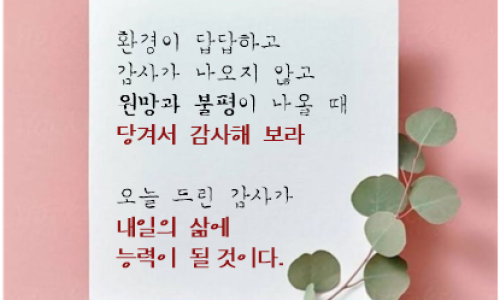 환경이 답답하고
감사가 나오지 않고
원망과 불평이 나올 때
당겨서 감사해 보라
오늘 드린 감사가
내일의 삶에
능력이 될 것이다.